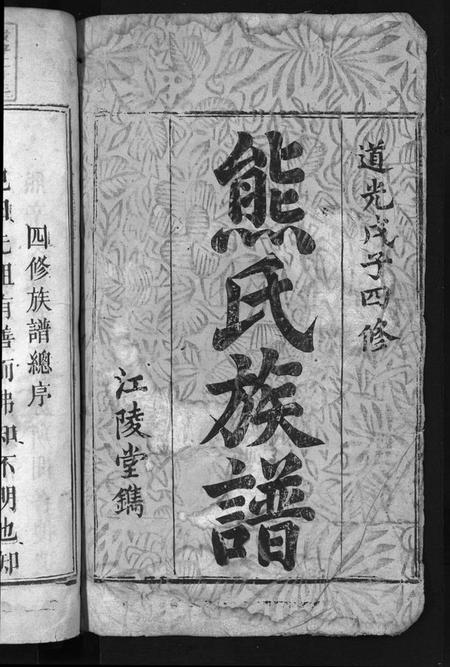 道光戊子四修
熊氏族譜
江陵堂鐫
四修族譜總序
先祖有善而弗知不明也知